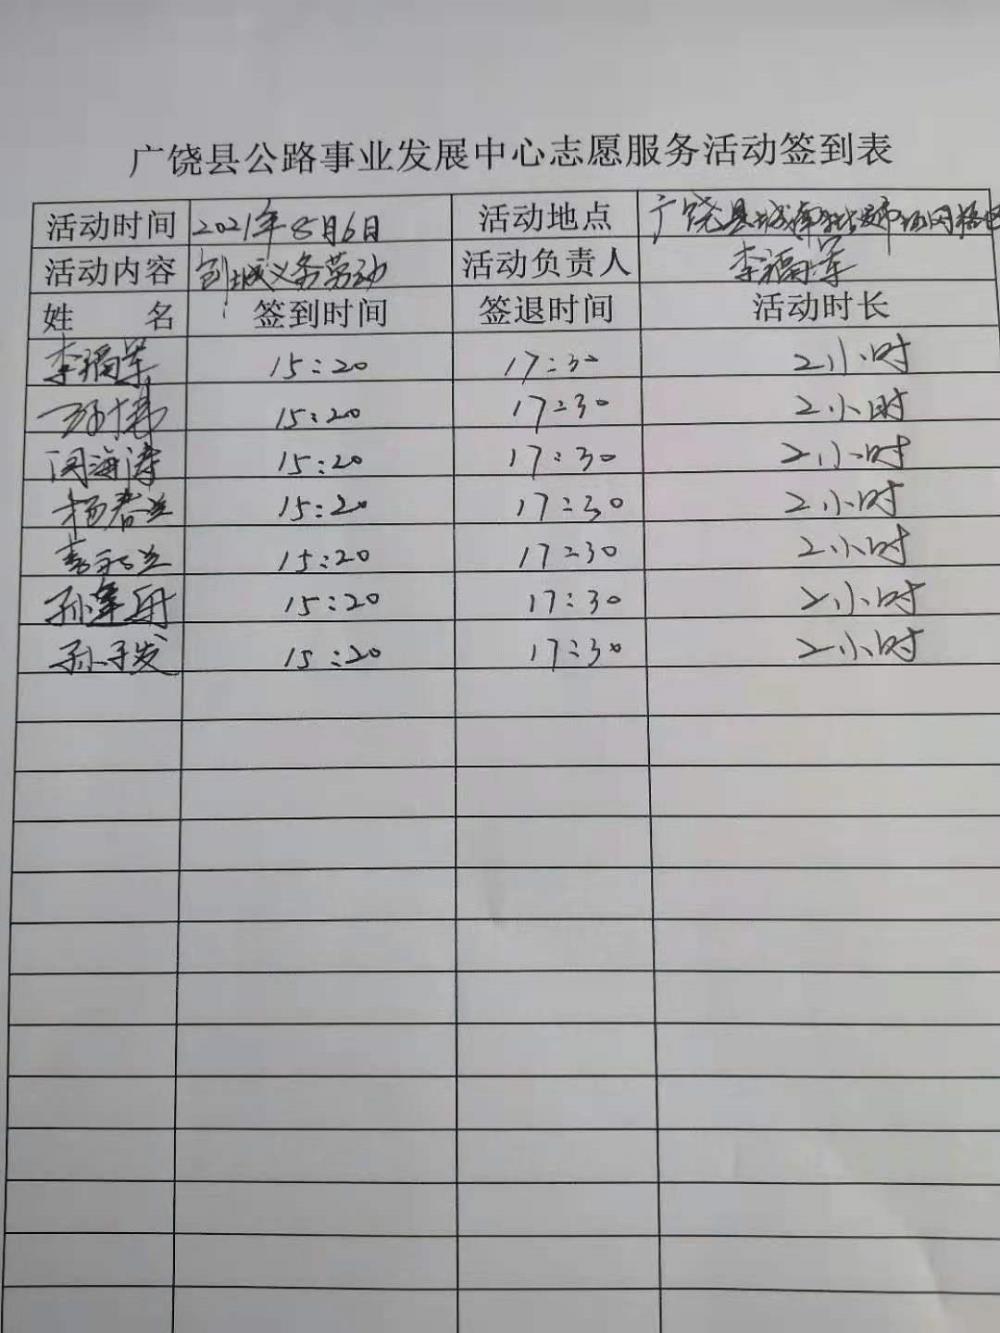 广饶县公路事业发展中心志愿服务活动签到表
活动时间 2021年8月6日 活动地点 广饶县城南
活动内容 创城义务劳动 活动负责人 李福军
姓 名 签到时间 签退时间 活动时长
李福军 15:20 17:30 2小时
15:20 17:30 2小时
闫海涛 15:20 17:30 2小时
杨春兰 15:20 17:30 2小时
15:20 17:30 2小时
孙军 15:20 17:30 2小时
孙子发 15:20 17:30 2小时